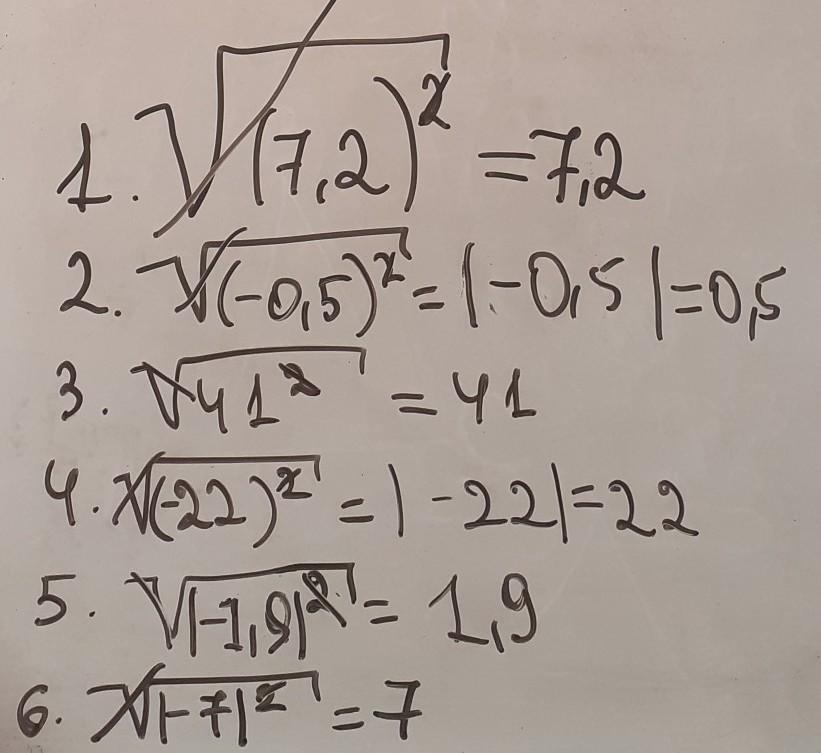 1. √(7,2)² = 7,2
2. √(-0,5)² = |-0,5| = 0,5
3. √41² = 41
4. √(-22)² = |-22| = 22
5. √|-1,9|² = 1,9
6. √|-7|² = 7